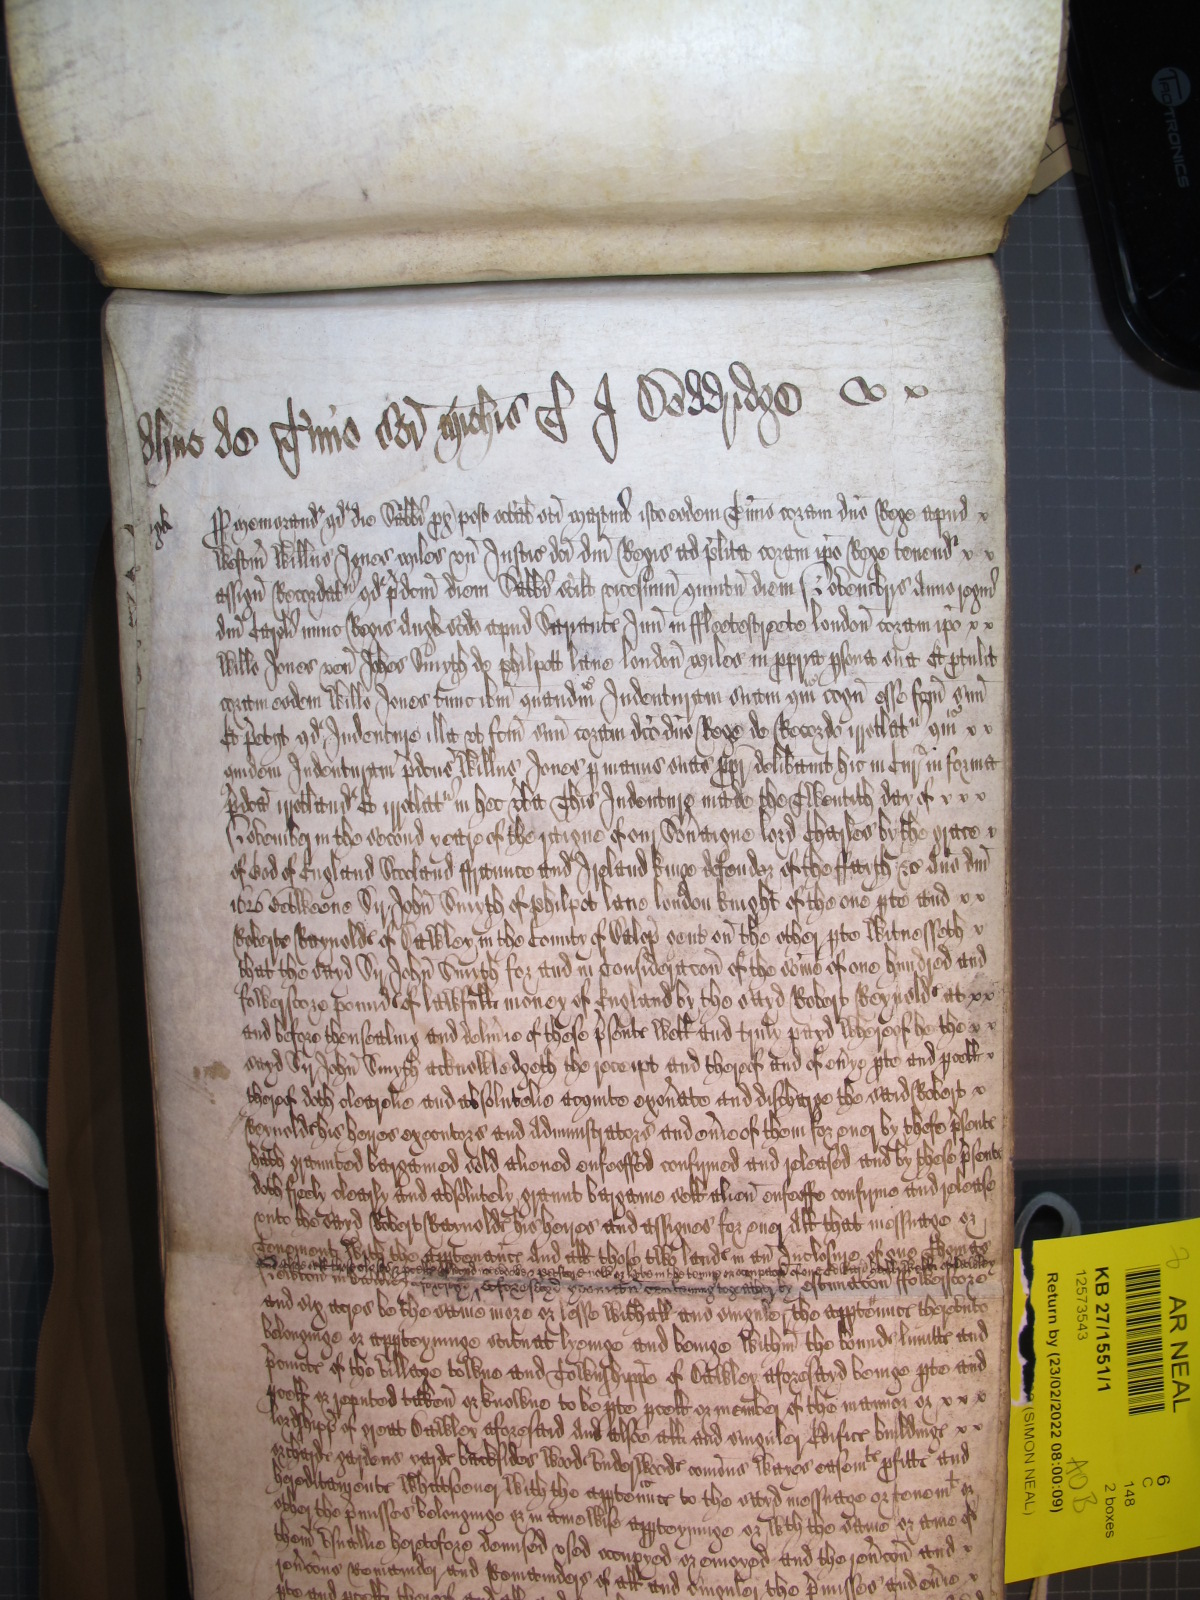 Adhuc de Termino sci Michis T J Doddridge
Memorand qd die Sabbi px post octab sci Martini isto eodem Termino coram dno Rege apud
Westm Willus Jones miles un Justic dci dni Regis ad plita coram ipo Rege tenend
assign Recordat qd pdcm diem Sabbi scilt vicesimu quintu diem Novembris anno regni
dni Caroli nunc Regis Angl scdo apud Serjants Inn in ffleetestreete london coram ipo
Willo Jones ven Johes Smyth de philpott lane london miles in ppria psona sua Et ptulit
coram eodem Willo Jones tunc ibm quandm Indenturam suam qm cogn esse fcm suu
Et petit qd Indentura illa ut fcm suu coram dco dno Rege de Recordo irrotlet qm
quidem Indenturam pdcus Willus Jones p manus suas ppr delibavit hic in Cur in forma
pdca irrotland Et irrotlat in hec vba This Indenture made the Twentith day of
November in the second yeare of the raigne of our Soveraigne lord Charles by the grace
of God of England Scotland ffraunce and Ireland kinge defender of the ffayth &c Anno dni
1626 Betweene Sr John Smyth of philpot lane london knight of the one pte and
Roberte Raynolds of Oakley in the County of Salop gent on the other pte Witnesseth
that the sayd Sr John Smyth for and in consideracon of the some of one hundred and
fowerscore pounds of lawfull money of England by the sayd Robert Reynolds at
and before thensealing and delivie of these psents well and truly payd whereof he the
sayd Sr John Smyth acknowledgeth the receipt and thereof and of evrye pte and pcell
thereof doth clearelie and absolutelie acquite exonate and discharge the said Robert
Reynolds his heires executors and administrators and evie of them for ever by these psents
hath graunted bargained sold aliened enfeoffed confirmed and released and by these psents
doth freely clearly and absolutely graunt bargaine sell alien enfeoffe confirme and release
unto the sayd Robert Raynolds his heires and assignes for ever All that messuage or
Tenement with the apptenncs And all those land in an Inclosure of one Thomas
estimacon ffowerscore
and six acres be the same more or lesse with all and singuler the apptennce thereunto
belonginge or appteyninge scituat lyeinge and beinge within the bounds limitts and
pcincts of the village towne and Towneshippe of Oakley aforesayd beinge pte and
pcell or reputed taken or knowne to be pte pcell or member of the mannor or
lordshipp of great Oakley aforesaid And alsoe all and singuler Edifice buildings
orchards gardens yards backsides woods underwoods comons wayes easemts pfitts and
hereditaments whatsoever with the apptennce to the sayd messuage or tenemt or
other the pmisses belonginge or in aniewise appteyninge or with the same or anie of
them usuallie heretofore demised used occupyed or enioyed and the revcon and
revcons remainder and Remainders of all and singuler the pmisses and evie
pte and pcell thereof and all
TAOTRONICS
AR NEAL
KB 27/1551/1
12573543
(SIMON NEAL)
Return by (23/02/2022 08:00:09)
6
C
148
2 boxes